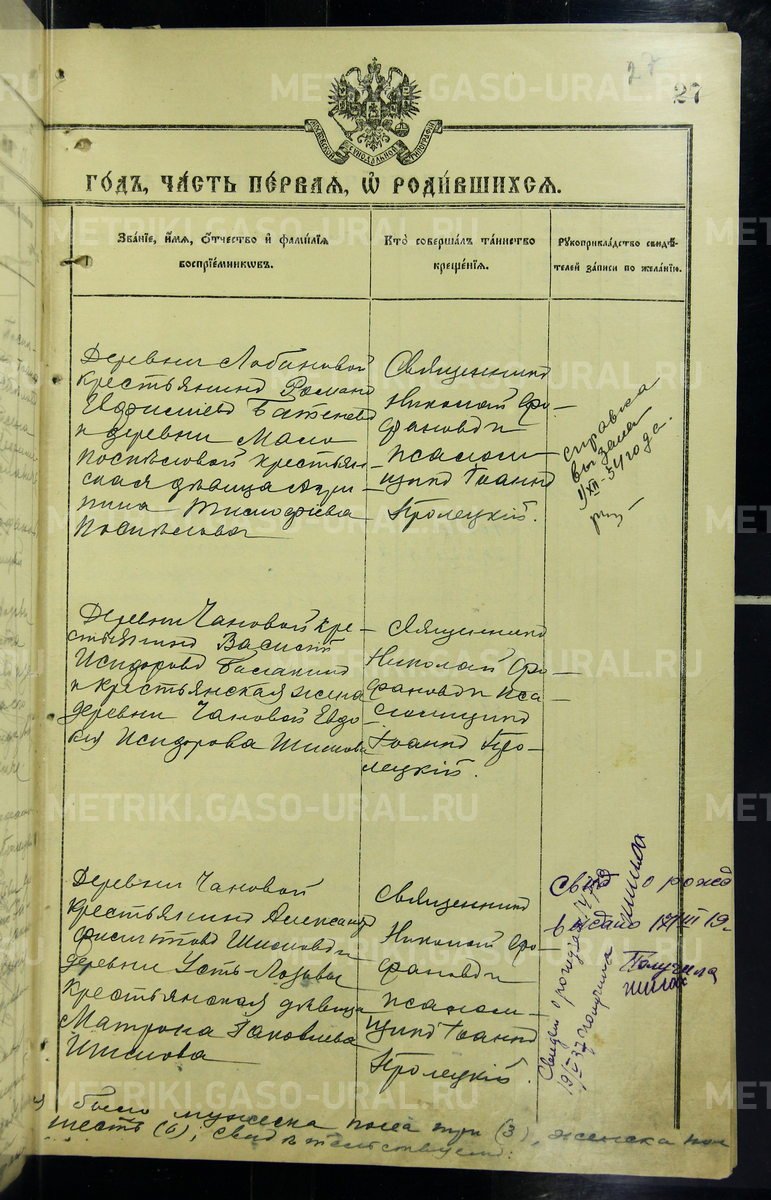 27
27
METRIKI.GASO-URAL.RU
МОСКОВСКОЙ СѴНОДАЛЬНОЙ ТИПОГРАФІИ
ГОДЪ, ЧАСТЬ ПЕРВАЯ, Ѡ РОДИВШИХСЯ.
Званіе, имя, отчество и фамилія
воспріемниковъ.
Кто совершалъ таинство
крещенія.
Рукоприкладство свидѣ-
телей записи по желанію.
Деревни Лобановой
крестьянинъ Романъ
Евфимiевъ Баженовъ
и деревни Мало
Поспѣловой крестьян-
ская дѣвица
Тимофѣева
Поспѣлова
Священникъ
Николай Фео-
фановъ и
псалом-
щикъ Іоаннъ
Пролецкій.
справка
выдана
1/XII-34 года.
Деревни Чановой кре-
стьянинъ Василій
Исидоровъ
и крестьянская жена
деревни Чановой Евдо-
кія Исидорова Шишова
Священникъ
Николай Фео-
фановъ и пса-
ломщикъ
Іоаннъ Про-
лецкій.
Деревни Чановой
крестьянинъ Александръ
Филиповъ Шишовъ и
деревни Усть-Лозовы
крестьянская дѣвица
Матрона Іаковлева
Шишова
Священникъ
Николай Фео-
фановъ и
псалом-
щикъ Іоаннъ
Пролецкій.
о рожд
выдано 17/III 19
Получила
Свидет о рождении
19/I-37 получила
было мужеска пола три (3), женска пол
шесть (6), свидѣтельствуемъ: